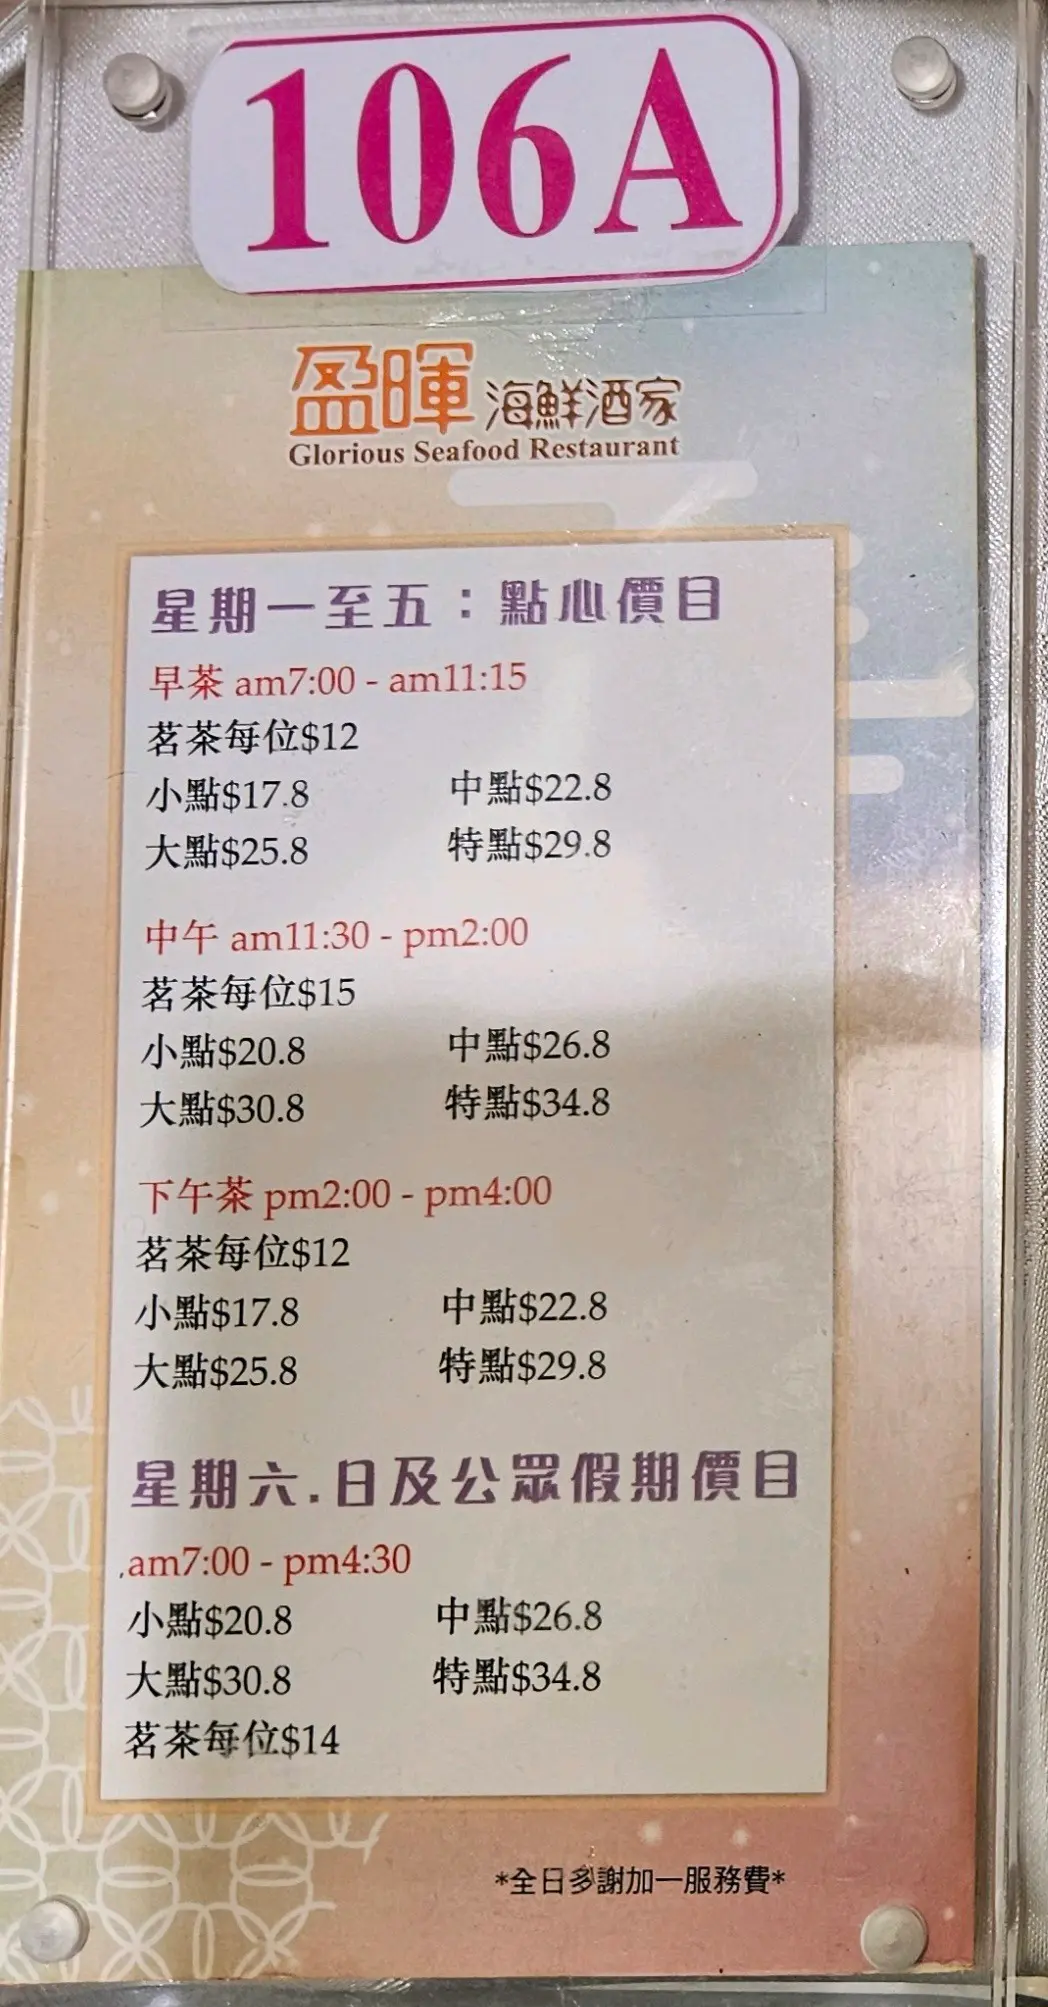 106A
盈暉 海鮮酒家
Glorious Seafood Restaurant
星期一至五：點心價目
早茶 am7:00 - am11:15
茗茶每位$12
小點$17.8 中點$22.8
大點$25.8 特點$29.8
中午 am11:30 - pm2:00
茗茶每位$15
小點$20.8 中點$26.8
大點$30.8 特點$34.8
下午茶 pm2:00 - pm4:00
茗茶每位$12
小點$17.8 中點$22.8
大點$25.8 特點$29.8
星期六.日及公眾假期價目
am7:00 - pm4:30
小點$20.8 中點$26.8
大點$30.8 特點$34.8
茗茶每位$14
*全日多謝加一服務費*